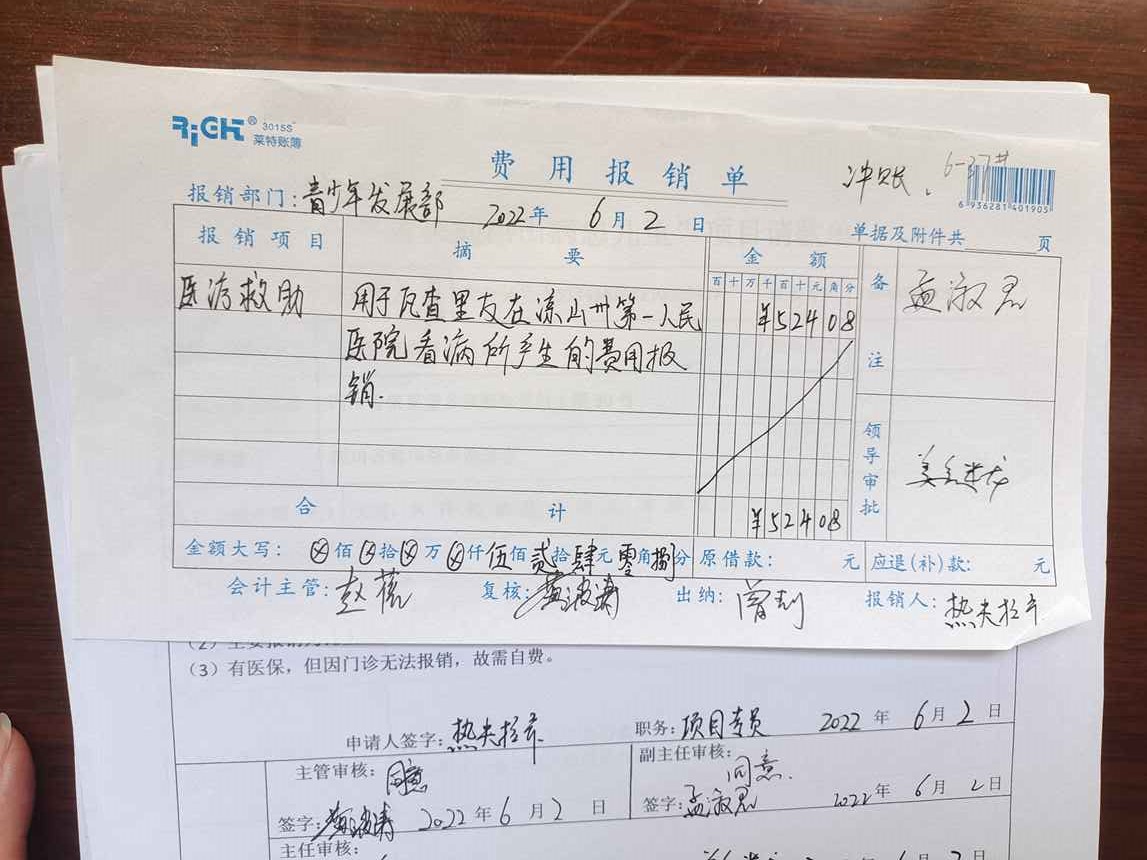 RiGHT® 3015S
莱特账簿
费用报销单
冲账.
6 936281 401905
报销部门:青少年发展部 2022年6月2日 单据及附件共 页
报销项目 摘要 金额 备注
百十万千百十元角分
医疗救助 用于瓦查里友在凉山州第一人民 ¥52408 孟淑君
医院看病所产生的费用报
销.
领导审批
合计 ¥52408
金额大写:ⓧ佰ⓧ拾ⓧ万ⓧ仟伍佰贰拾肆元零角捌分 原借款: 元 应退(补)款: 元
会计主管: 复核: 出纳: 报销人:热夫拉布
(3)有医保,但因门诊无法报销,故需自费。
申请人签字:热夫拉布 职务:项目专员 2022年6月2日
主管审核:同意 副主任审核:同意.
签字: 2022年6月2日 签字:孟淑君 2022年6月2日
主任审核: